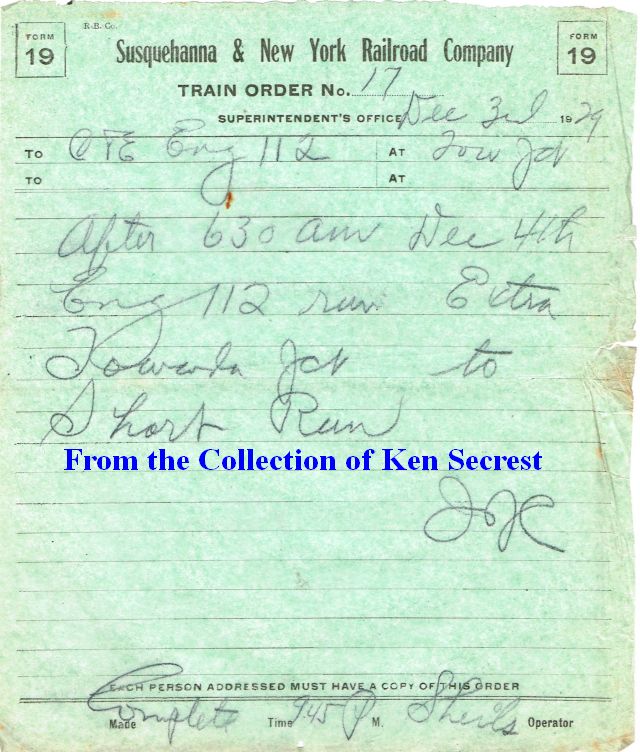 FORM 19 R.B. Co. FORM 19
Susquehanna & New York Railroad Company
TRAIN ORDER No. 17
SUPERINTENDENT'S OFFICE Dec 3rd 1929
TO C&E Eng 112 AT Tow Jct
TO AT
After 630 am Dec 4th
Eng 112 run Extra
Towanda Jct to
Short Run
From the Collection of Ken Secrest
EACH PERSON ADDRESSED MUST HAVE A COPY OF THIS ORDER
Made Complete Time 945 P M. Operator